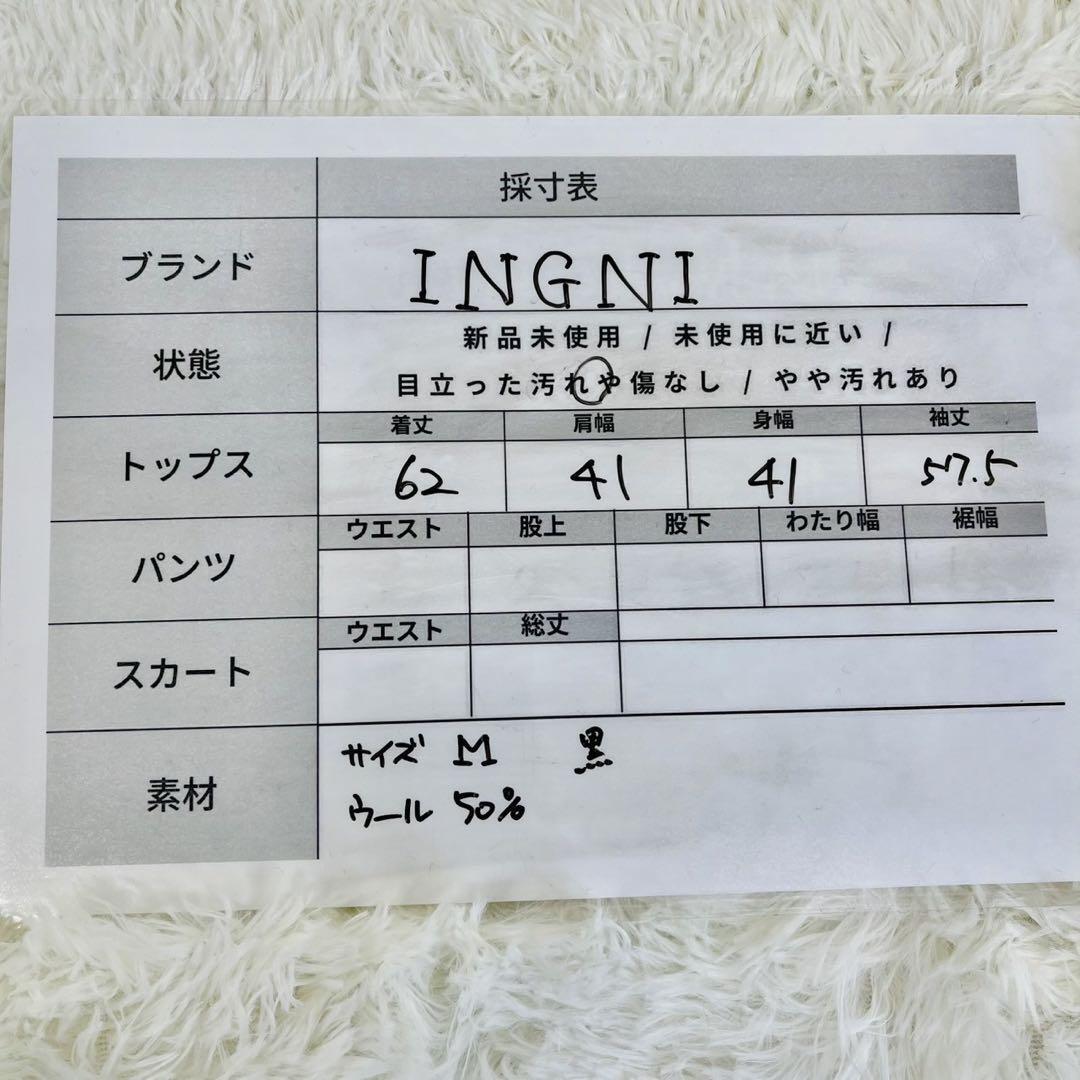 採寸表
ブランド INGNI
状態 新品未使用 / 未使用に近い /
目立った汚れや傷なし / やや汚れあり
トップス 着丈 肩幅 身幅 袖丈
62 41 41 57.5
パンツ ウエスト 股上 股下 わたり幅 裾幅
スカート ウエスト 総丈
素材 サイズ M 黒
ウール 50%